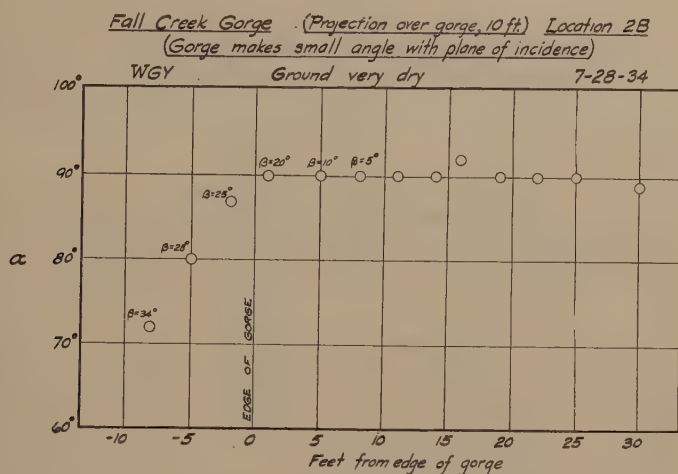 Fall Creek Gorge (Projection over gorge, 10 ft.) Location 2B
(Gorge makes small angle with plane of incidence)
WGY Ground very dry 7-28-34
100°
90°
80°
70°
60°
α
β=34°
β=28°
β=25°
β=20°
β=10°
β=5°
EDGE OF GORGE
-10 -5 0 5 10 15 20 25 30
Feet from edge of gorge